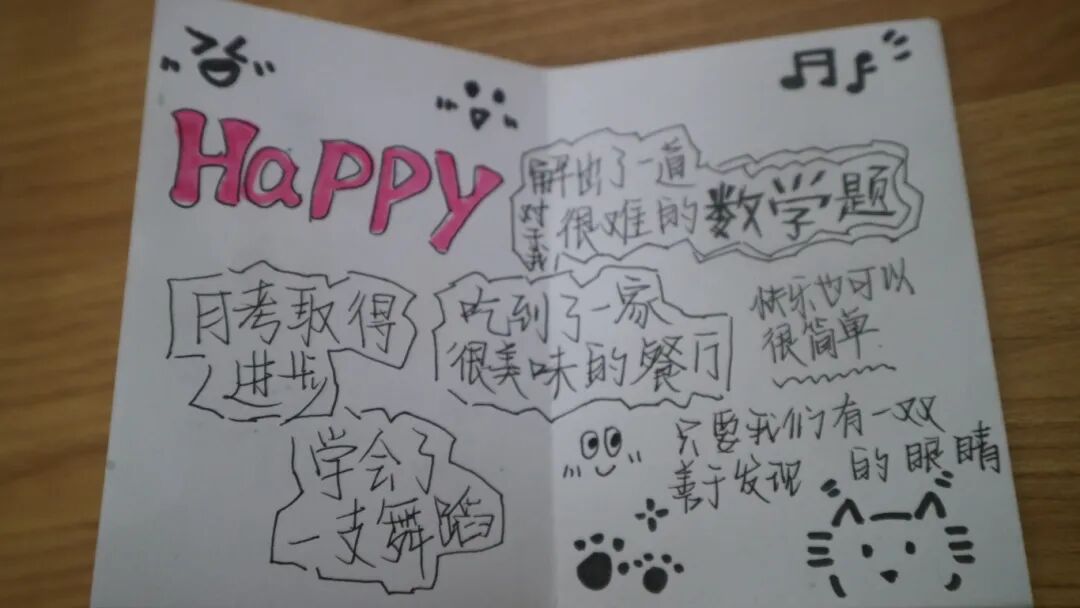 Happy
解出了一道
对于我很难的数学题
月考取得
进步
吃到了一家
很美味的餐厅
快乐也可以
很简单
学会了
一支舞蹈
只要我们有一双
善于发现的眼睛